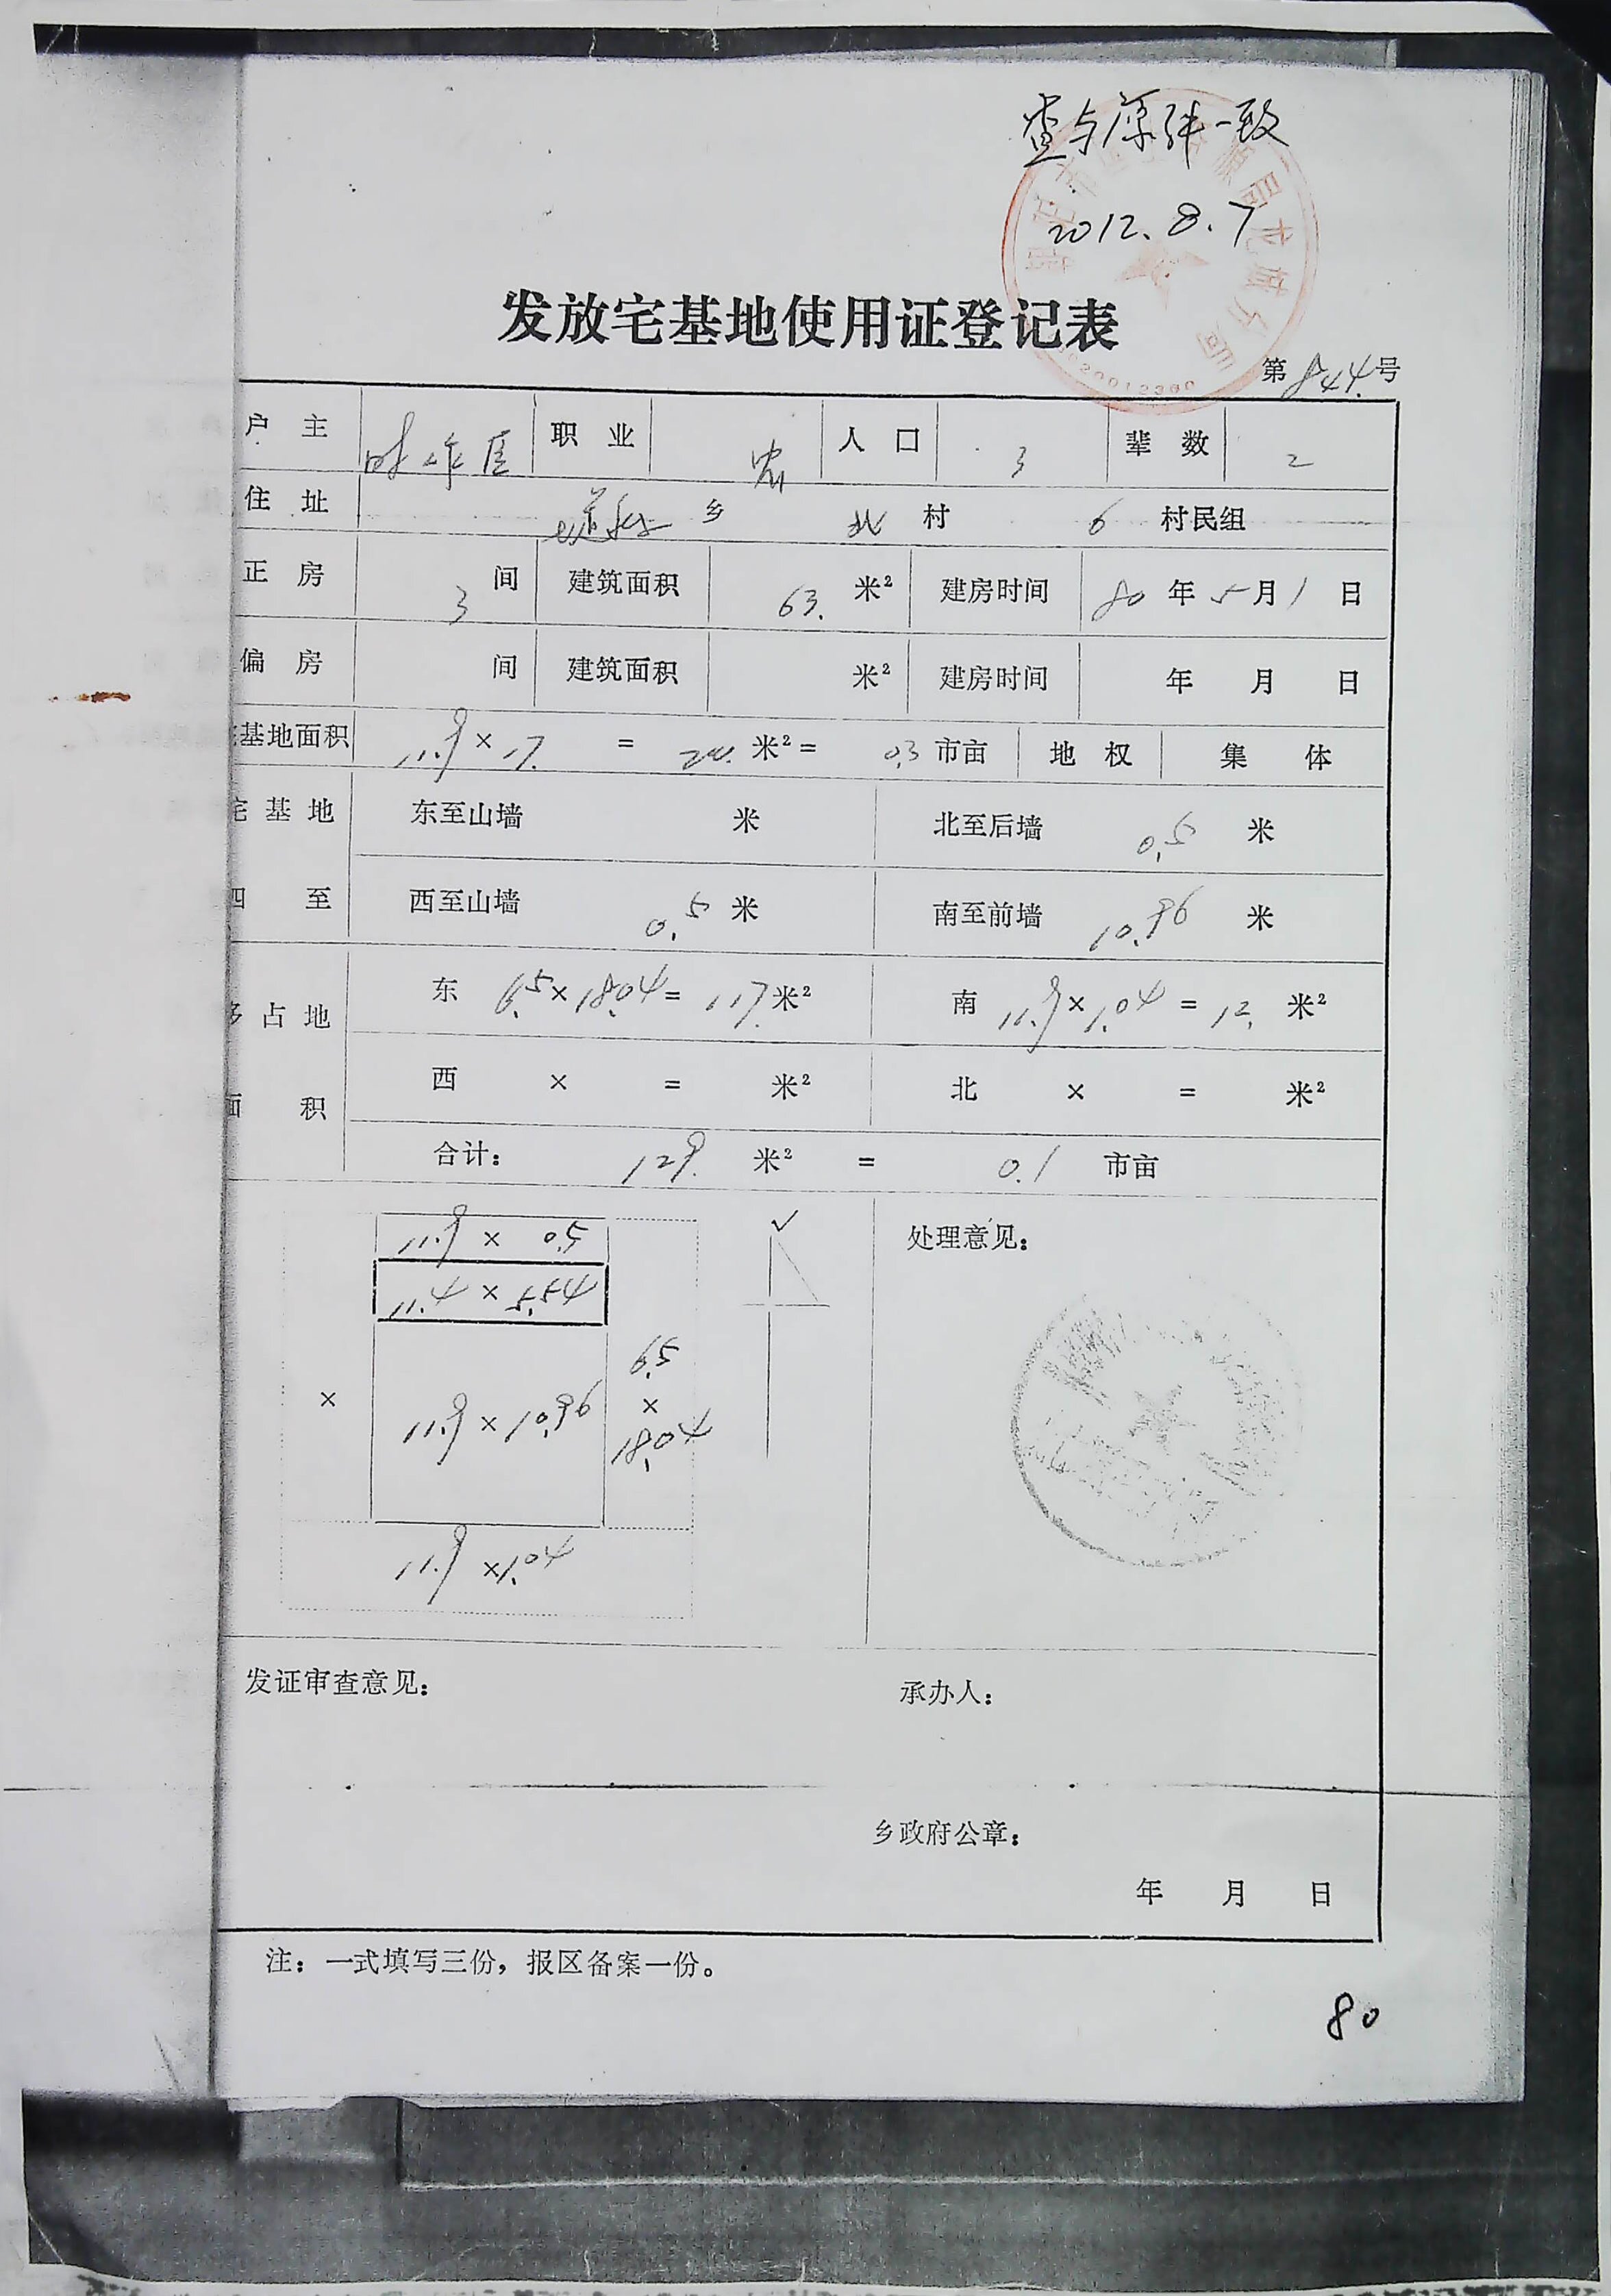 查与原件一致
2012.8.7
发放宅基地使用证登记表
第844号
户 主 时作臣 职 业 农 人 口 3 辈 数 2
住 址 乡 北 村 6 村民组
正 房 3 间 建筑面积 63. 米² 建房时间 80 年 5 月 1 日
偏 房 间 建筑面积 米² 建房时间 年 月 日
基地面积 11.9 × 17. = 米² = 0.3 市亩 地 权 集 体
宅 基 地 东至山墙 米 北至后墙 0.5 米
四 至 西至山墙 0.5 米 南至前墙 10.96 米
多 占 地 东 6.5 × 18.04 = 117. 米² 南 11.9 × 1.04 = 12. 米²
面 积 西 × = 米² 北 × = 米²
合计: 129. 米² = 0.1 市亩
11.9 × 0.5
11.4 × 5.54
× 11.9 × 10.96 6.5 × 18.04
11.9 × 1.04
处理意见:
发证审查意见: 承办人:
乡政府公章:
年 月 日
注: 一式填写三份, 报区备案一份。
80